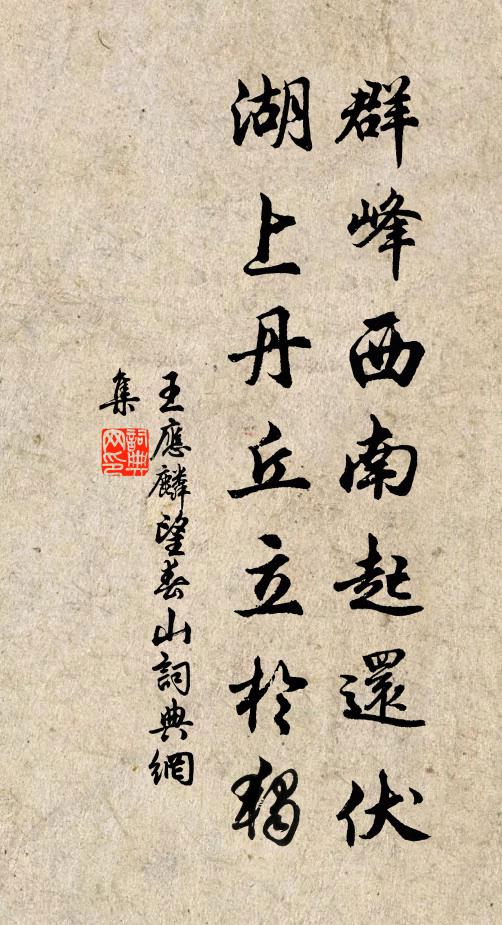 群峰西南起還伏
湖上丹丘立於獨
王應麟望春山詞典網
集
詞典
网印